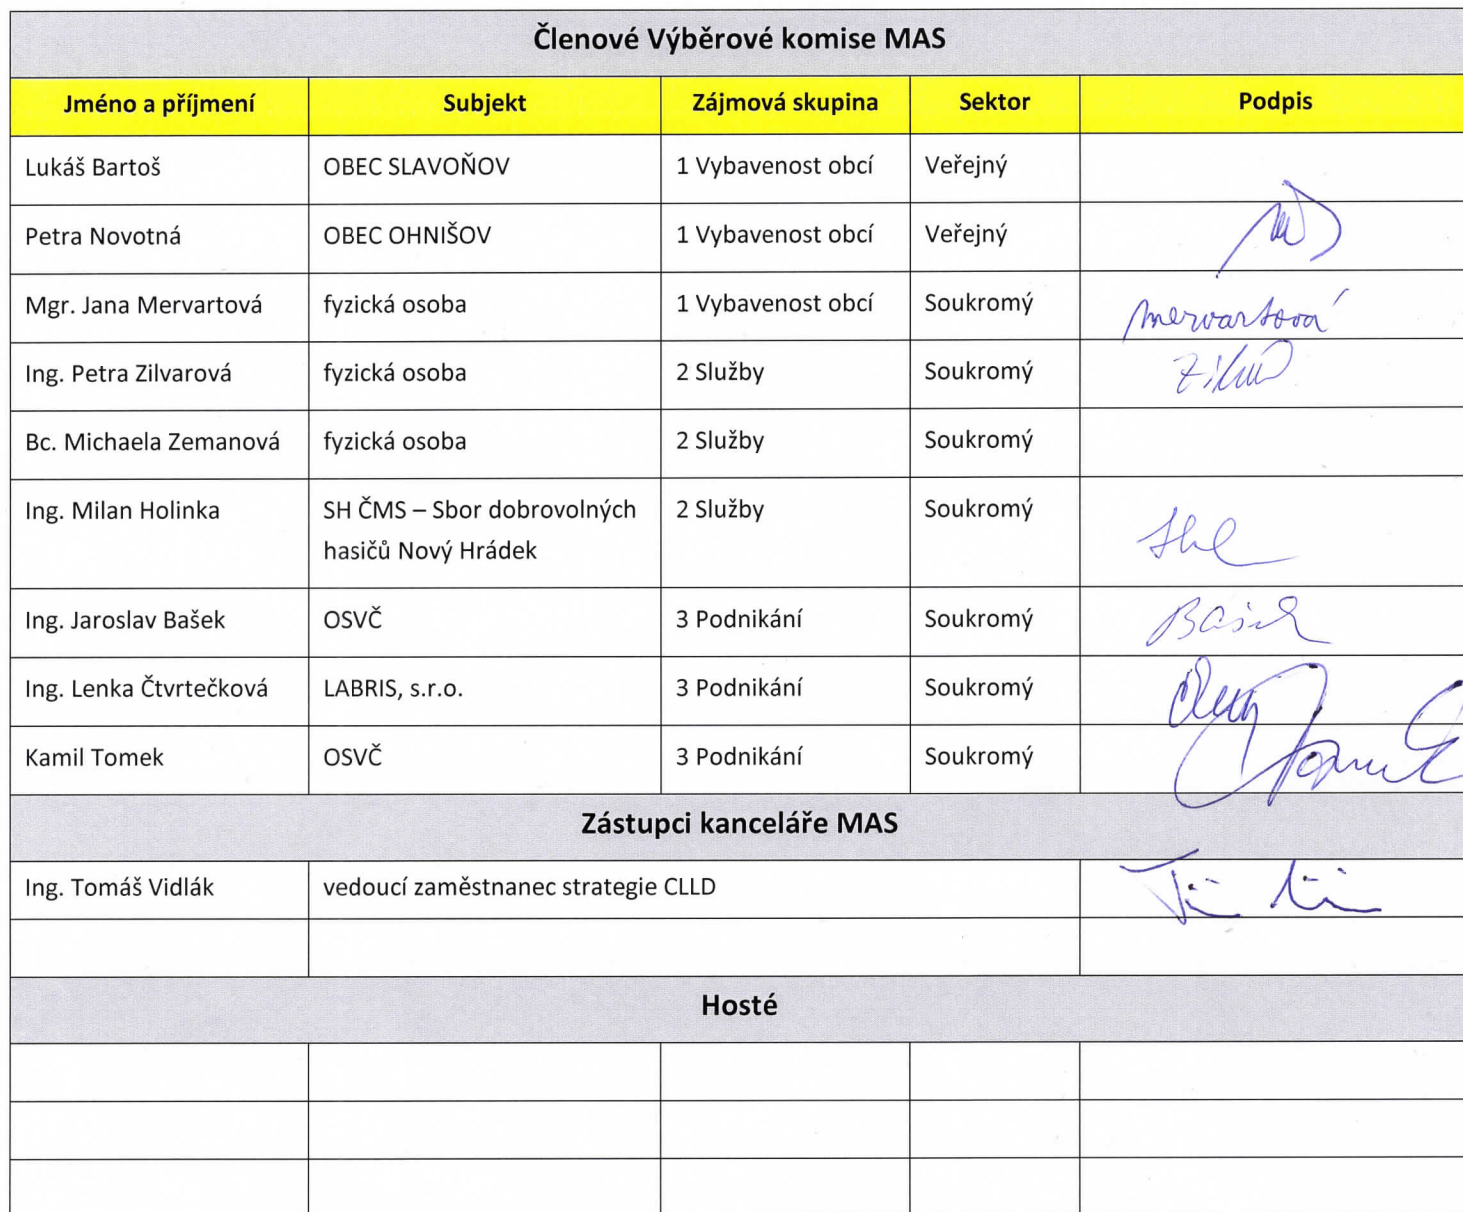 Členové Výběrové komise MAS
Jméno a příjmení Subjekt Zájmová skupina Sektor Podpis
Lukáš Bartoš OBEC SLAVOŇOV 1 Vybavenost obcí Veřejný
Petra Novotná OBEC OHNIŠOV 1 Vybavenost obcí Veřejný
Mgr. Jana Mervartová fyzická osoba 1 Vybavenost obcí Soukromý Mervartová
Ing. Petra Zilvarová fyzická osoba 2 Služby Soukromý
Bc. Michaela Zemanová fyzická osoba 2 Služby Soukromý
Ing. Milan Holinka SH ČMS – Sbor dobrovolných 2 Služby Soukromý
hasičů Nový Hrádek
Ing. Jaroslav Bašek OSVČ 3 Podnikání Soukromý
Ing. Lenka Čtvrtečková LABRIS, s.r.o. 3 Podnikání Soukromý
Kamil Tomek OSVČ 3 Podnikání Soukromý
Zástupci kanceláře MAS
Ing. Tomáš Vidlák vedoucí zaměstnanec strategie CLLD
Hosté